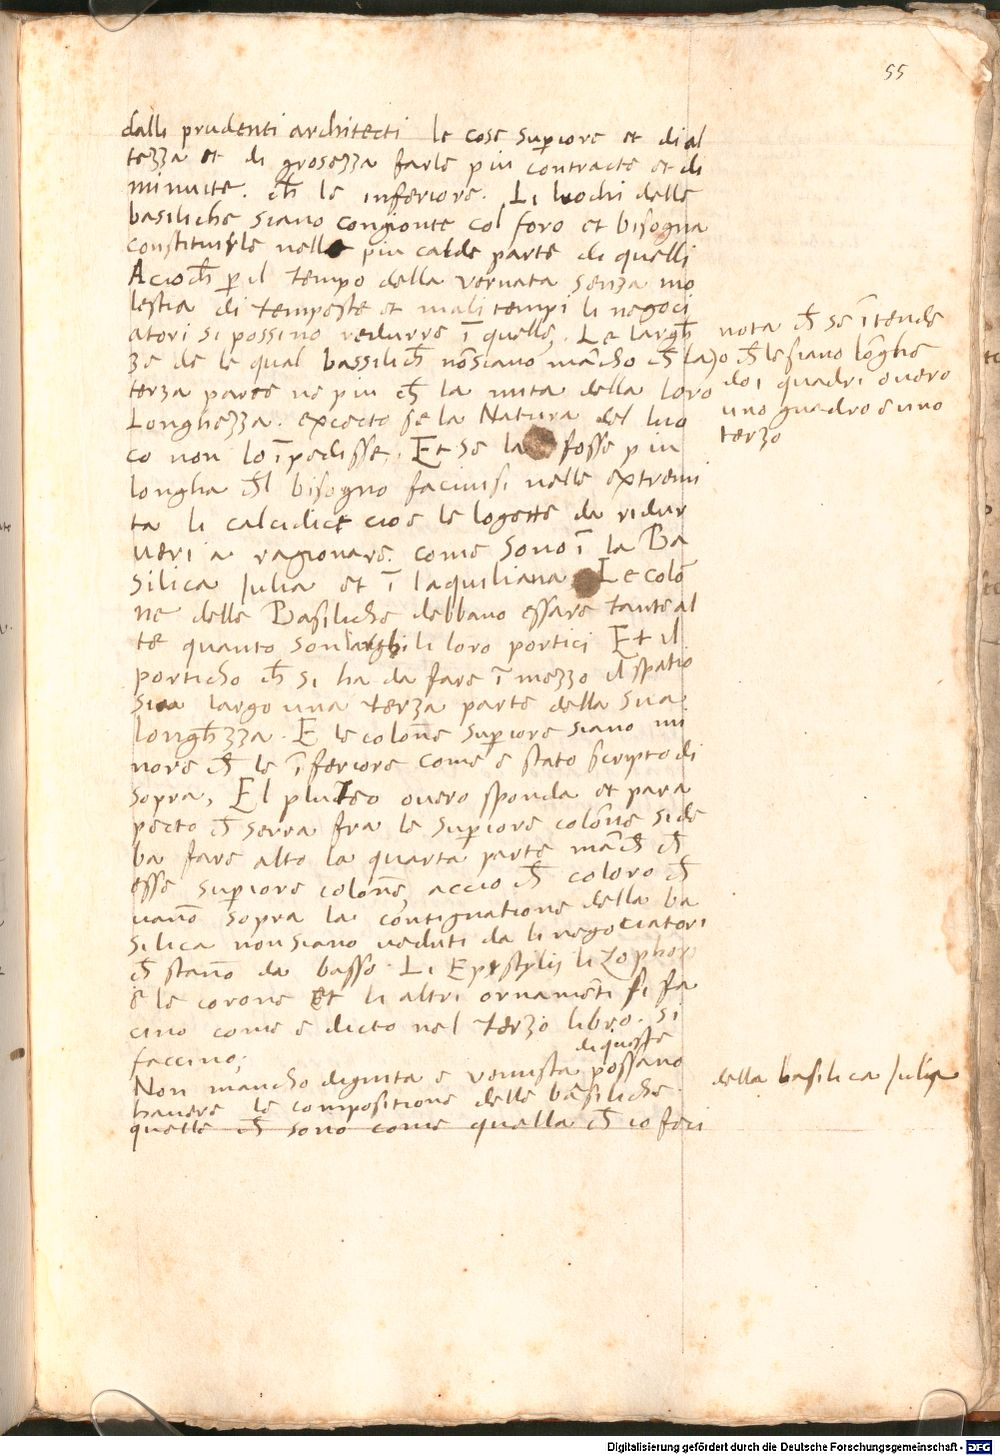 55
dalli prudenti architecti le cose sup̲iore et di al
tezza et di grosezza farle piu contracte et di
minuite. ch̅ le inferiore. Li luochi delle
basiliche siano congionte col foro et bisogna
constituirle nelle piu calde parte di quelli
Acioch̅ p̲ il tempo della vernata senza mo
lestia di tempeste et mali tempi li negoci
atori si possino redurre ī quelle, Le largh̅
ze de le qual bassilich̅ nōsiano mācho ch̅ la
terza parte ne piu ch̅ la mita della loro
Longhezza. excecto se la Natura del luo
co non lo īpedisse, Et se la fosse piu
longha ch̅l bisogno facivisi nelle extremi
ta li calcidice cioe le logette da ridur
ueri a ragionare. come sono ī la Ba
silica Julia et ī laquiliana Le colō
ne delle Basiliche debbano essare tante al
te quanto son larghi li loro portici Et il
porticho ch̅ si ha da fare ī mezzo il spatio
sia largo una terza parte della sua
longh̅zza. E le colōne sup̲iore siano mi
nore ch̅ le īferiore come e stato scripto di
sopra, El pluteo overo sponda et para
pecto ch̅ serra fra le sup̲iore colōne si de
ba fare alto la quarta parte māch̅ ch̅
esse sup̲iore colōne, accio ch̅ coloro ch̅
vanō sopra la contignatione della ba
silica non siano veduti da li negociatori
ch̅ stanō da basso. Li Epistylii li Zophori
e le corone Et li altri ornamēti si fa
cino come e dicto nel terzo libro. si
faccino;
di queste
Non mancho dignita e venusta possano
havere le compositione delle basiliche
quelle ch̅ sono come quella ch̅ io feci
nota ch̅ se ītende
o ch̅ le siano lōghe
doi quadri overo
uno quadro e uno
terzo
della basilica Julia
Digitalisierung gefördert durch die Deutsche Forschungsgemeinschaft - DFG